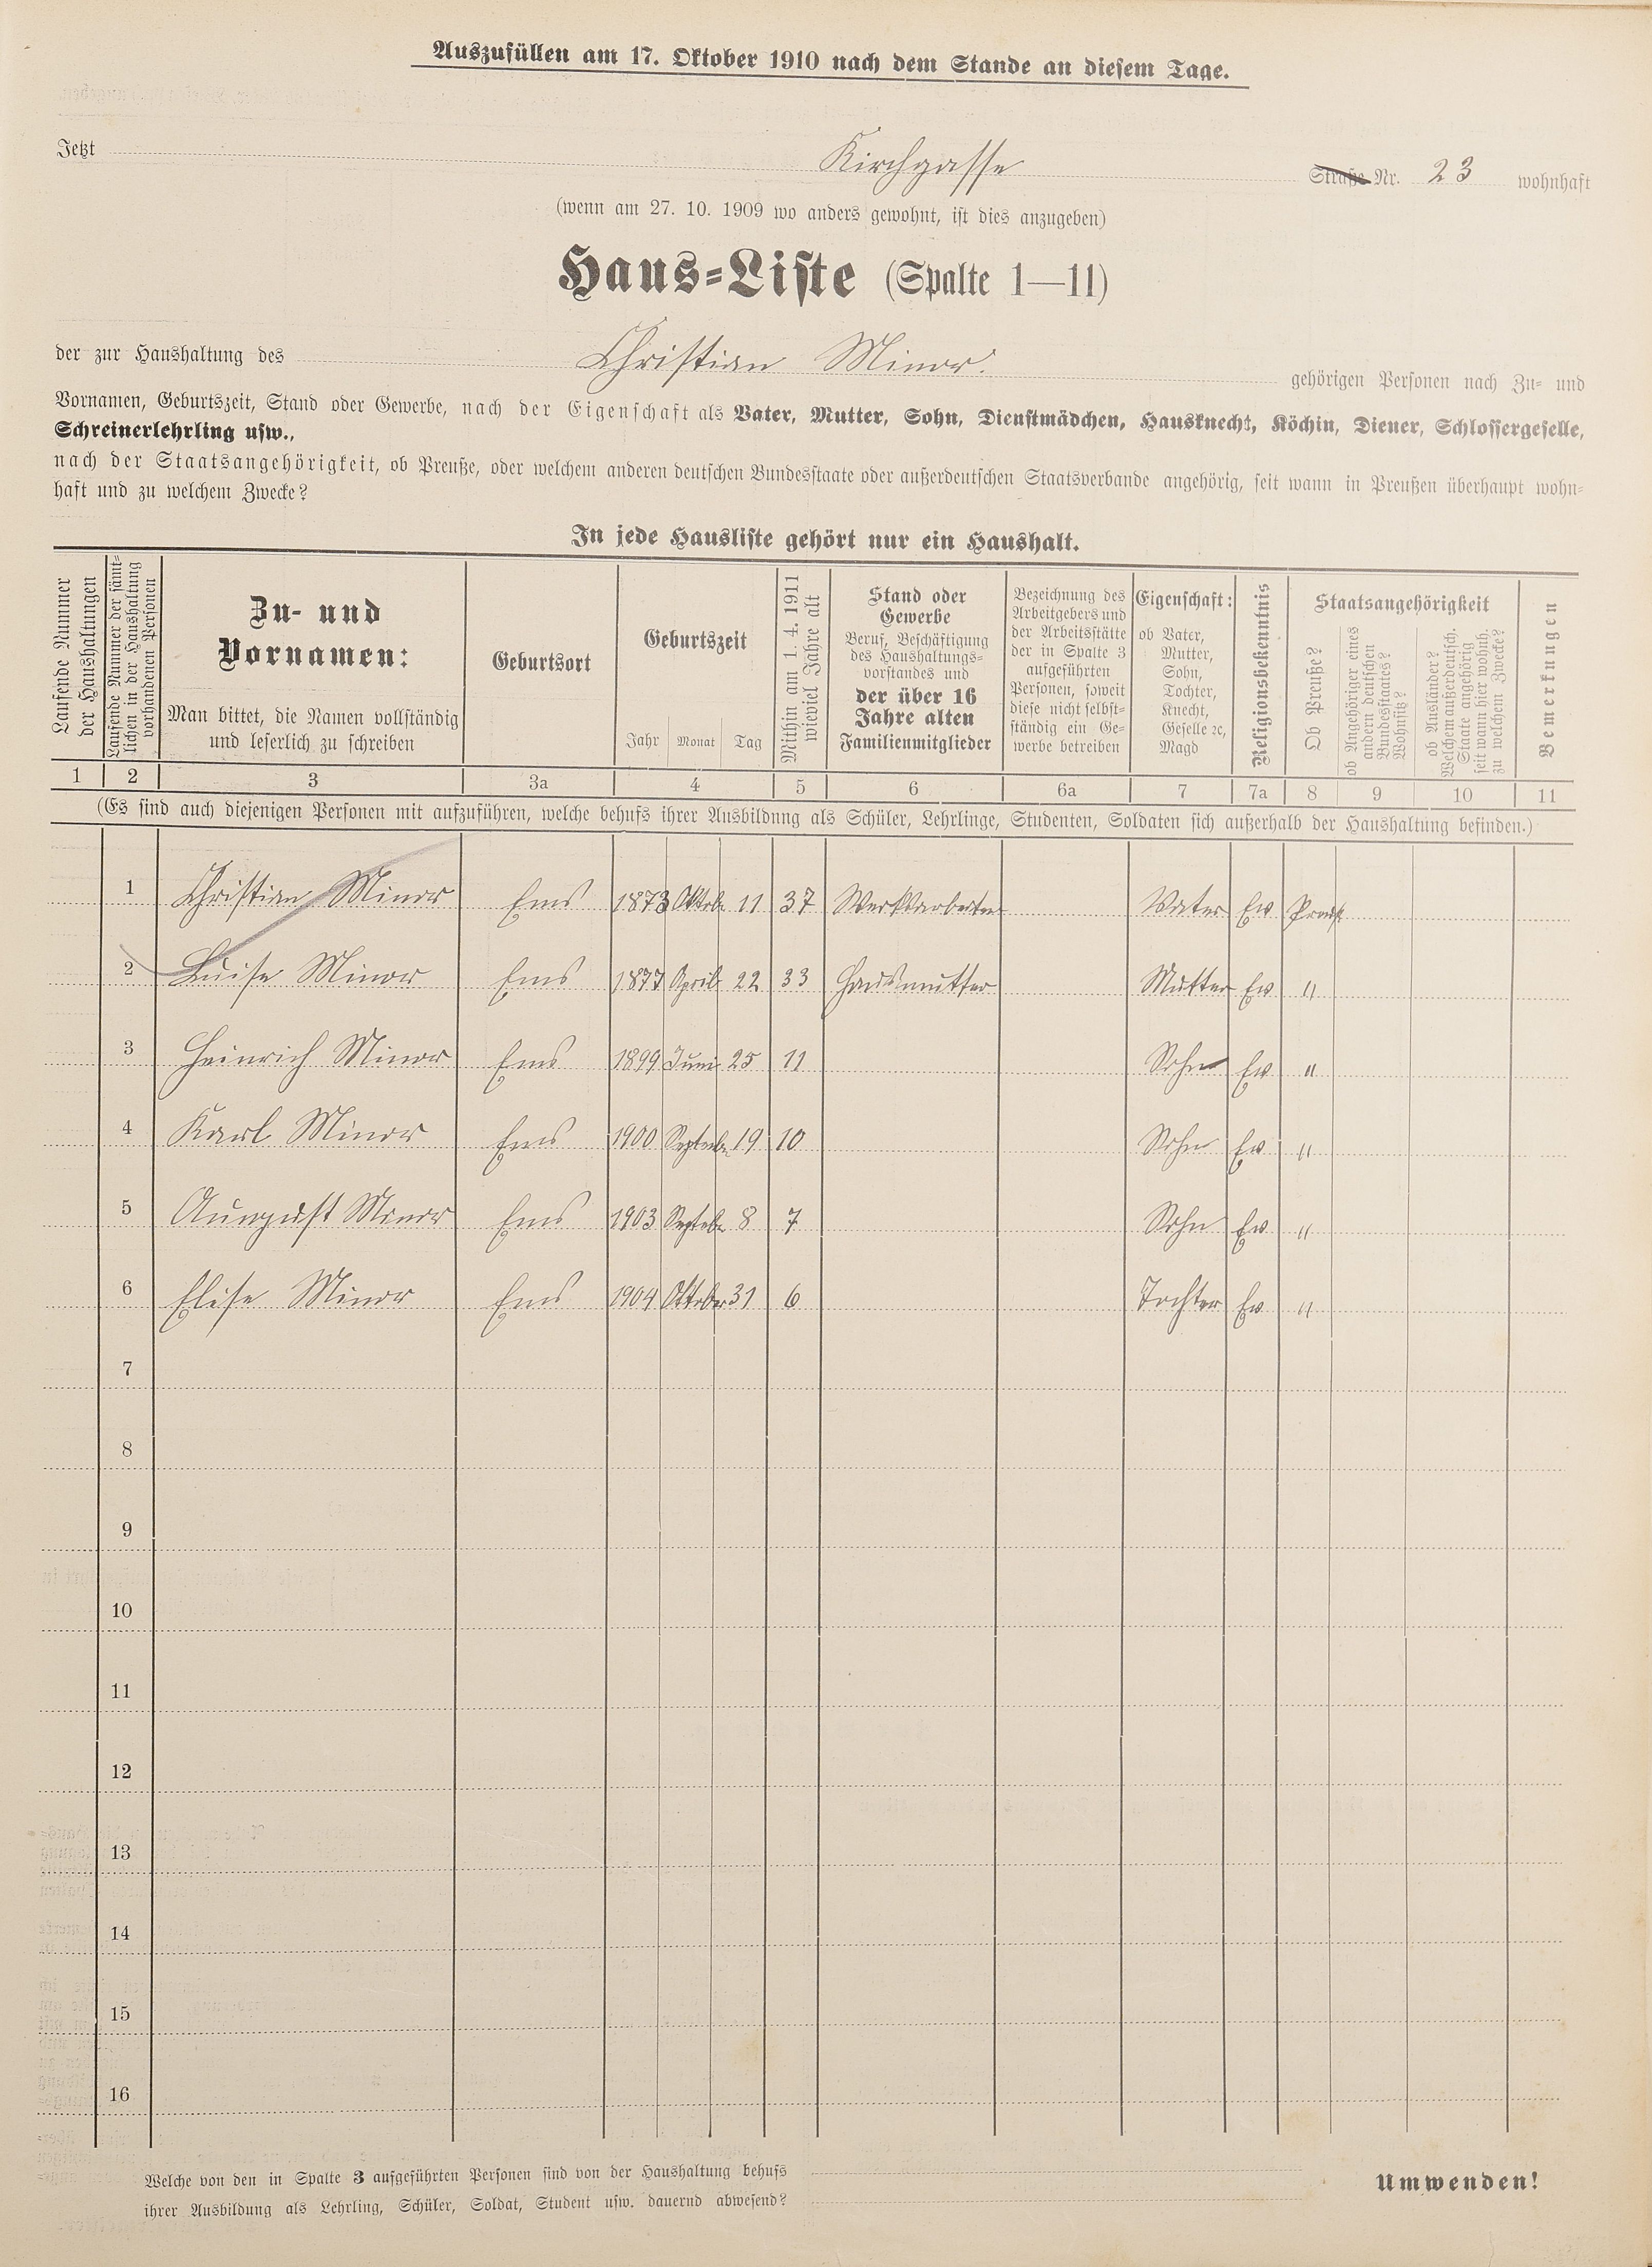 Auszufüllen am 17. Oktober 1910 nach dem Stande an diesem Tage.
Jetzt Kirchgasse Straße Nr. 23 wohnhaft
(wenn am 27. 10. 1909 wo anders gewohnt, ist dies anzugeben)
Haus-Liste (Spalte 1—11)
der zur Haushaltung des Christian Minor. gehörigen Personen nach Zu- und
Vornamen, Geburtszeit, Stand oder Gewerbe, nach der Eigenschaft als Vater, Mutter, Sohn, Dienstmädchen, Hausknecht, Köchin, Diener, Schlossergeselle,
Schreinerlehrling usw.,
nach der Staatsangehörigkeit, ob Preuße, oder welchem anderen deutschen Bundesstaate oder außerdeutschen Staatsverbande angehörig, seit wann in Preußen überhaupt wohn-
haft und zu welchem Zwecke?
In jede Hausliste gehört nur ein Haushalt.
Laufende Nummer
der Haushaltungen
Laufende Nummer der sämt-
lichen in der Haushaltung
vorhandenen Personen
Zu- und
Vornamen:
Man bittet, die Namen vollständig
und leserlich zu schreiben
Geburtsort
Geburtszeit
Jahr Monat Tag
Mithin am 1. 4. 1911
wieviel Jahre alt
Stand oder
Gewerbe
Beruf, Beschäftigung
des Haushaltungs-
vorstandes und
der über 16
Jahre alten
Familienmitglieder
Bezeichnung des
Arbeitgebers und
der Arbeitsstätte
der in Spalte 3
aufgeführten
Personen, soweit
diese nicht selbst-
ständig ein Ge-
werbe betreiben
Eigenschaft:
ob Vater,
Mutter,
Sohn,
Tochter,
Knecht,
Geselle ꝛc,
Magd
Religionsbekenntnis
Staatsangehörigkeit
Ob Preuße?
ob Angehöriger eines
andern deutschen
Bundesstaates?
Wohnsitz?
ob Ausländer?
Welchem außerdeutsch.
Staate angehörig
seit wann hier wohnh.
zu welchem Zwecke?
Bemerkungen
1 2 3 3a 4 5 6 6a 7 7a 8 9 10 11
(Es sind auch diejenigen Personen mit aufzuführen, welche behufs ihrer Ausbildung als Schüler, Lehrlinge, Studenten, Soldaten sich außerhalb der Haushaltung befinden.)
1 Christian Minor Ems 1873 11 37 Vater Ev
2 Luise Minor Ems 1877 April 22 33 Hausmutter Mutter Ev "
3 Heinrich Minor Ems 1899 Juni 25 11 Sohn Ev "
4 Karl Minor Ems 1900 19 10 Sohn Ev "
5 Minor Ems 1903 8 7 Sohn Ev "
6 Elise Minor Ems 1904 Oktober 31 6 Tochter Ev "
7
8
9
10
11
12
13
14
15
16
Welche von den in Spalte 3 aufgeführten Personen sind von der Haushaltung behufs
ihrer Ausbildung als Lehrling, Schüler, Soldat, Student usw. dauernd abwesend?
Umwenden!